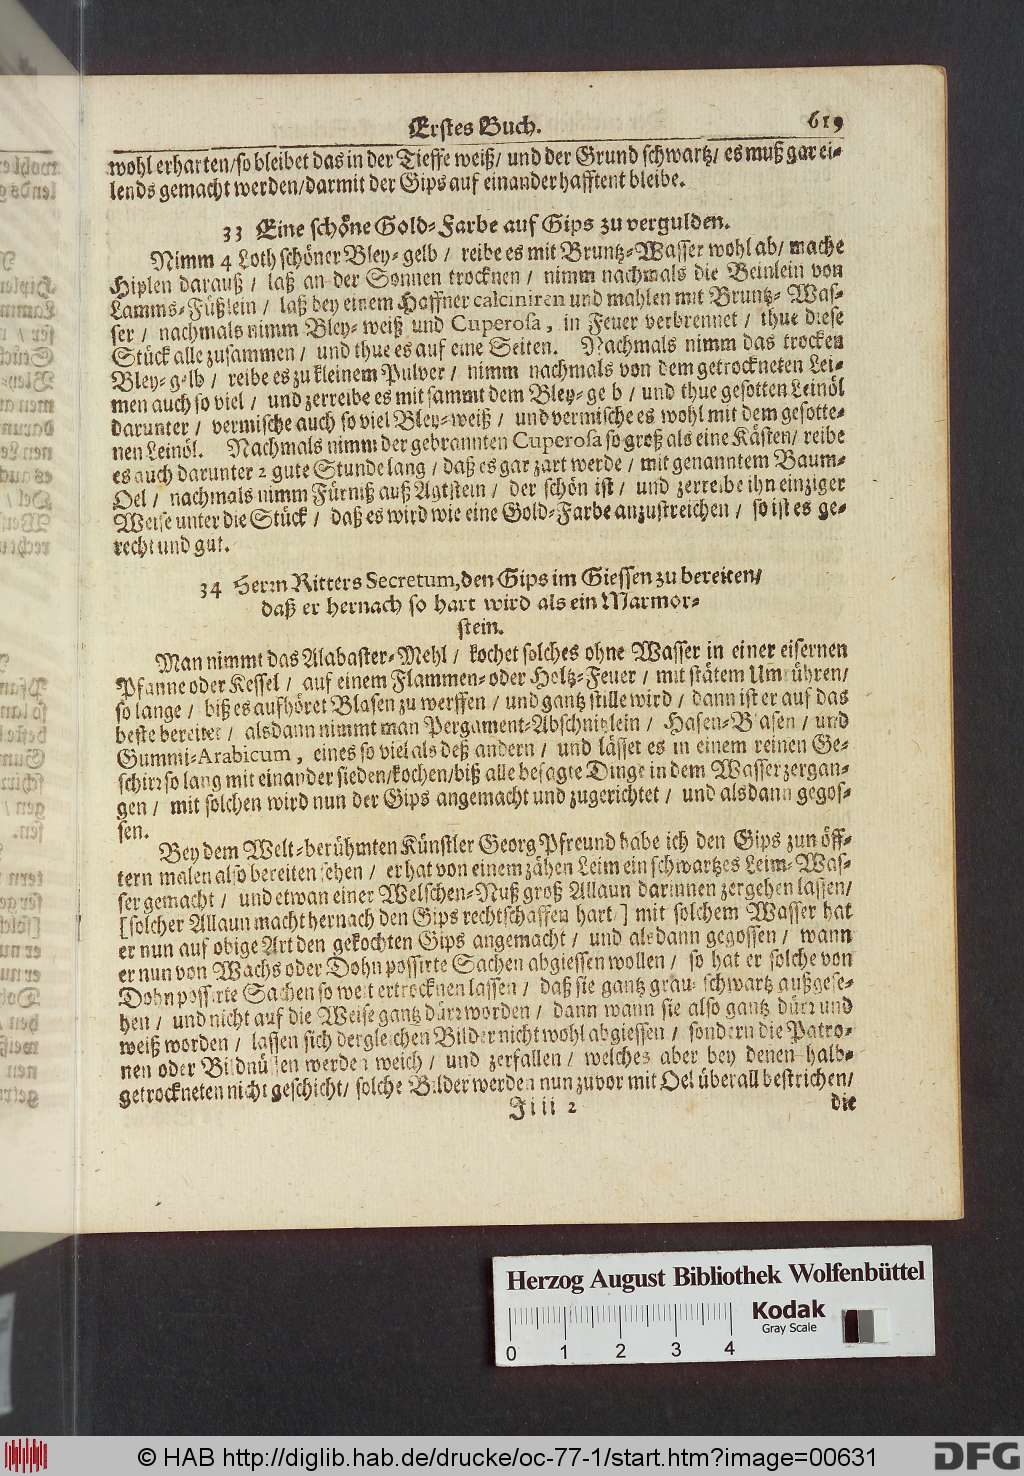 Erstes Buch. 619
wohl erharten/so bleibet das in der Tieffe weiß/ und der Grund schwartz/ es muß gar ei-
lends gemacht werden/darmit der Gips auf einander hafftent bleibe.
33 Eine schöne Gold-Farbe auf Gips zu vergulden.
Nimm 4 Loth schöner Bley-gelb / reibe es mit Bruntz-Wasser wohl ab/ mache
Hiplen darauß / laß an der Sonnen trocknen / nimm nachmals die Beinlein von
Lamms-Füßlein / laß bey einem Haffner calciniren und mahlen mit Bruntz-Was-
ser / nachmals nimm Bley-weiß und Cuperosa, in Feuer verbrennet / thue diese
Stück alle zusammen / und thue es auf eine Seiten. Nachmals nimm das trocken
Bley-gelb / reibe es zu kleinem Pulver / nimm nachmals von dem getrockneten Lei-
men auch so viel / und zerreibe es mit sammt dem Bley-ge b / und thue gesotten Leinöl
darunter / vermische auch so viel Bley-weiß / und vermische es wohl mit dem gesotte-
nen Leinöl. Nachmals nimm der gebrannten Cuperosa so groß als eine Kästen/ reibe
es auch darunter 2 gute Stunde lang / daß es gar zart werde / mit genanntem Baum-
Oel / nachmals nimm Fürniß auß Agtstein / der schön ist / und zerreibe ihn einziger
Weise unter die Stück / daß es wird wie eine Gold-Farbe anzustreichen / so ist es ge-
recht und gut.
34 Herrn Ritters Secretum, den Gips im Giessen zu bereiten/
daß er hernach so hart wird als ein Marmor-
stein.
Man nimmt das Alabaster-Mehl / kochet solches ohne Wasser in einer eisernen
Pfanne oder Kessel / auf einem Flammen-oder Holtz-Feuer / mit stätem Umrühren/
so lange / biß es aufhöret Blasen zu werffen / und gantz stille wird / dann ist er auf das
beste bereitet / alsdann nimmt man Pergament-Abschnitzlein / Hasen-Blasen / und
Gummi-Arabicum, eines so viel als deß andern / und lässet es in einem reinen Ge-
schirr so lang mit einander sieden/kochen/biß alle besagte Dinge in dem Wasser zergan-
gen / mit solchen wird nun der Gips angemacht und zugerichtet / und alsdann gegos-
sen.
Bey dem Welt-berühmten Künstler Georg Pfreund habe ich den Gips zun öff-
tern malen also bereiten sehen / er hat von einem zähen Leim ein schwartzes Leim-Was-
ser gemacht / und etwan einer Welschen-Nuß groß Allaun darinnen zergehen lassen/
[solcher Allaun macht hernach den Gips rechtschaffen hart/] mit solchem Wasser hat
er nun auf obige Art den gekochten Gips angemacht / und alsdann gegossen / wann
er nun von Wachs oder Dohn possirte Sachen abgiessen wollen / so hat er solche von
Dohn possirte Sachen so weit ertrocknen lassen / daß sie gantz grau schwartz außgese-
hen / und nicht auf die Weise gantz dürr worden / dann wann sie also gantz dürr und
weiß worden / lassen sich dergleichen Bilder nicht wohl abgiessen / sondern die Patro-
nen oder Bildnüssen werden weich / und zerfallen / welches aber bey denen halb-
getrockneten nicht geschicht/ solche Bilder werden nun zuvor mit Oel überall bestrichen/
Jiii 2 die
Herzog August Bibliothek Wolfenbüttel
Kodak
Gray Scale
0 1 2 3 4
© HAB http://diglib.hab.de/drucke/oc-77-1/start.htm?image=00631
DFG